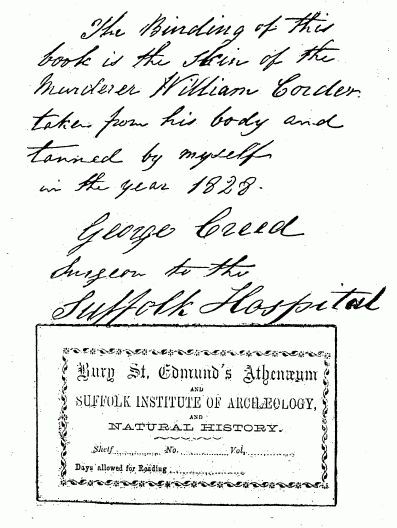 The Binding of this
book is the skin of the
Murderer William Corder
taken from his body and
tanned by myself
in the year 1828.
George Creed
Surgeon to the
Suffolk Hospital
Bury St. Edmund's Athenæum
AND
SUFFOLK INSTITUTE OF ARCHÆOLOGY,
AND
NATURAL HISTORY.
Shelf............No...........Vol,............
Days allowed for Reading ....................